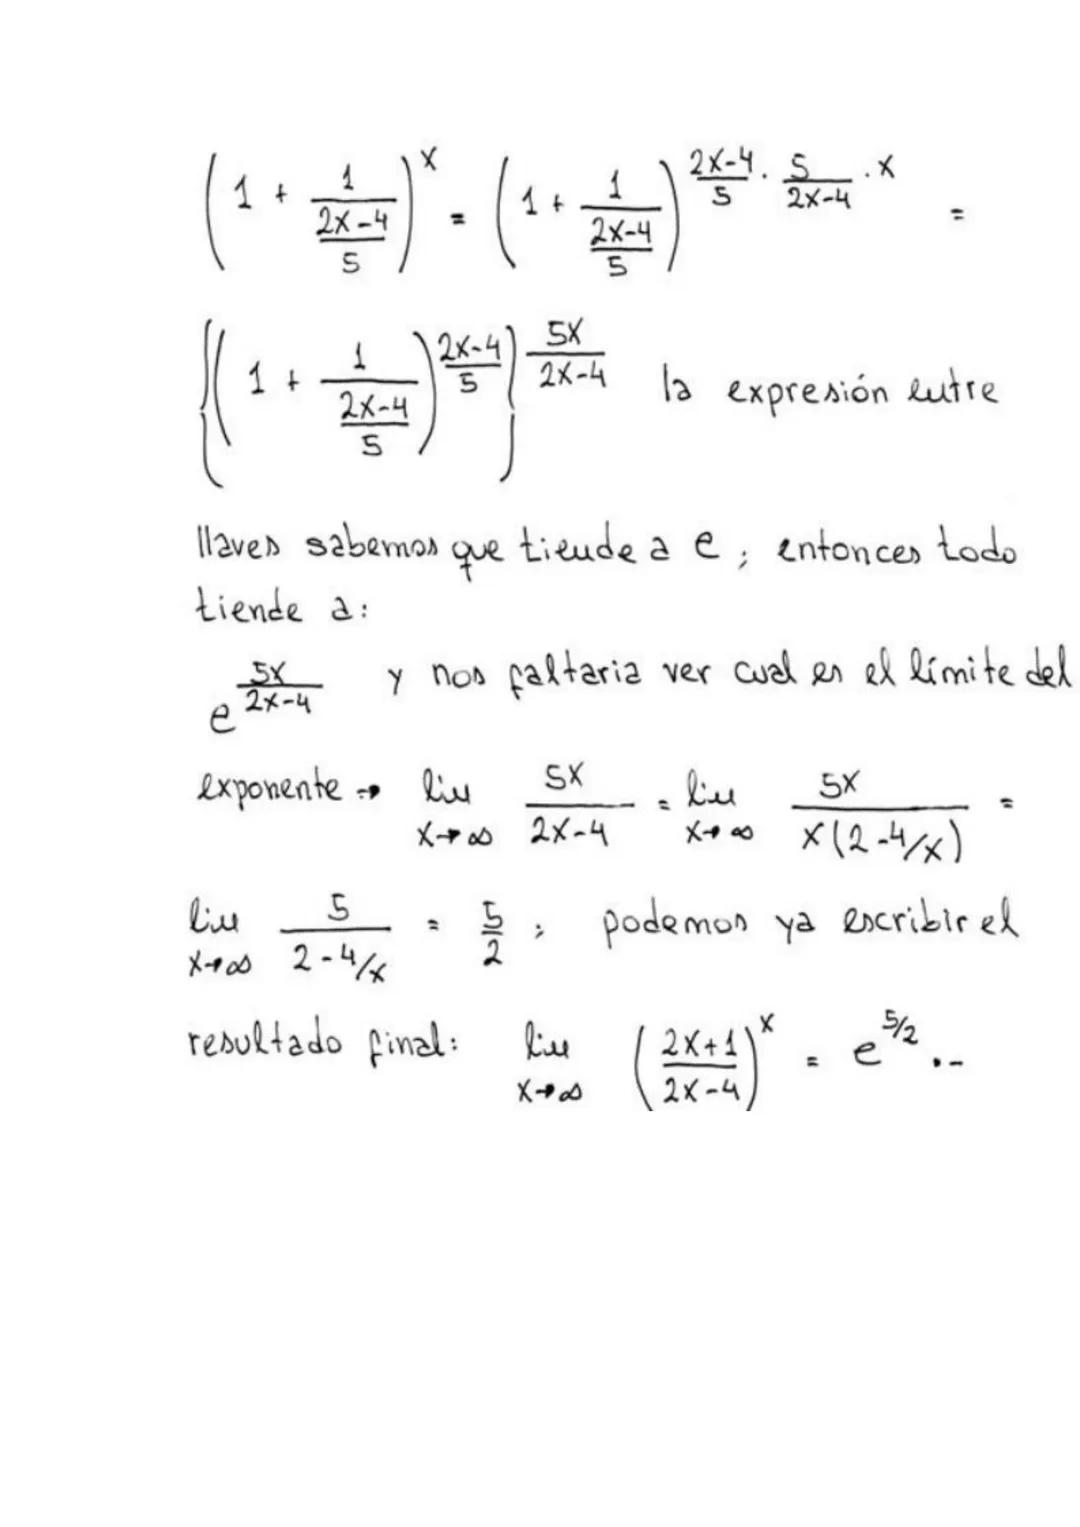 (1 + 1/((2x-4)/5))^x = (1 + 1/((2x-4)/5))^((2x-4)/5 · 5/(2x-4) · x) =
{(1 + 1/((2x-4)/5))^((2x-4)/5)}^(5x/(2x-4)) la expresión entre
llaves sabemos que tiende a e; entonces todo
tiende a:
e^(5x/(2x-4)) y nos faltaria ver cual es el límite del
exponente → lim x→∞ 5x/(2x-4) = lim x→∞ 5x/(x(2-4/x)) =
lim x→∞ 5/(2-4/x) = 5/2; podemos ya escribir el
resultado final: lim x→∞ ((2x+1)/(2x-4))^x = e^(5/2) ..